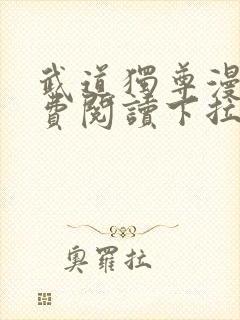 武道獨尊漫
費閱讀下拉
奧羅拉